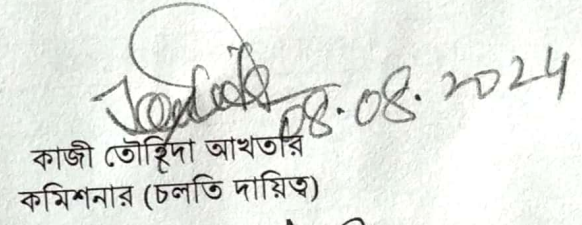 08.08.2024
কাজী তৌহিদা আখতার
কমিশনার (চলতি দায়িত্ব)